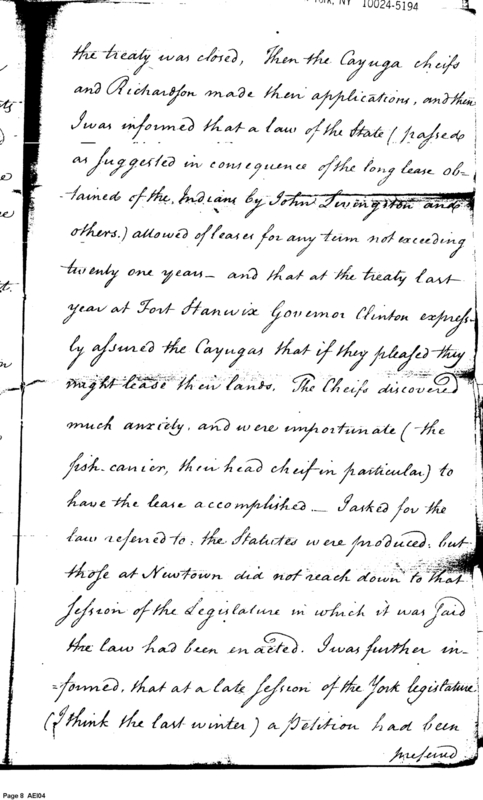 York, NY 10024-5194
the treaty was closed, Then the Cayuga cheifs
and Richardson made their applications, and then
I was informed that a law of the State ( passed
as suggested in consequence of the long lease ob=
tained of the Indians by John Livingston and
others.) allowed of leases for any term not exceeding
twenty one years — and that at the treaty last
year at Fort Stanwix Governor Clinton express-
ly assured the Cayugas that if they pleased they
might lease their lands. The Cheifs discovered
much anxiety, and were importunate ( the
fish-carrier, their head cheif in particular) to
have the lease accomplished — I asked for the
law referred to: the Statutes were produced: but
those at Newtown did not reach down to that
Session of the Legislature in which it was said
the law had been enacted. I was further in-
=formed, that at a late Session of the York legislature
(I think the last winter) a Petition had been
prefered
Page 8 AEI04